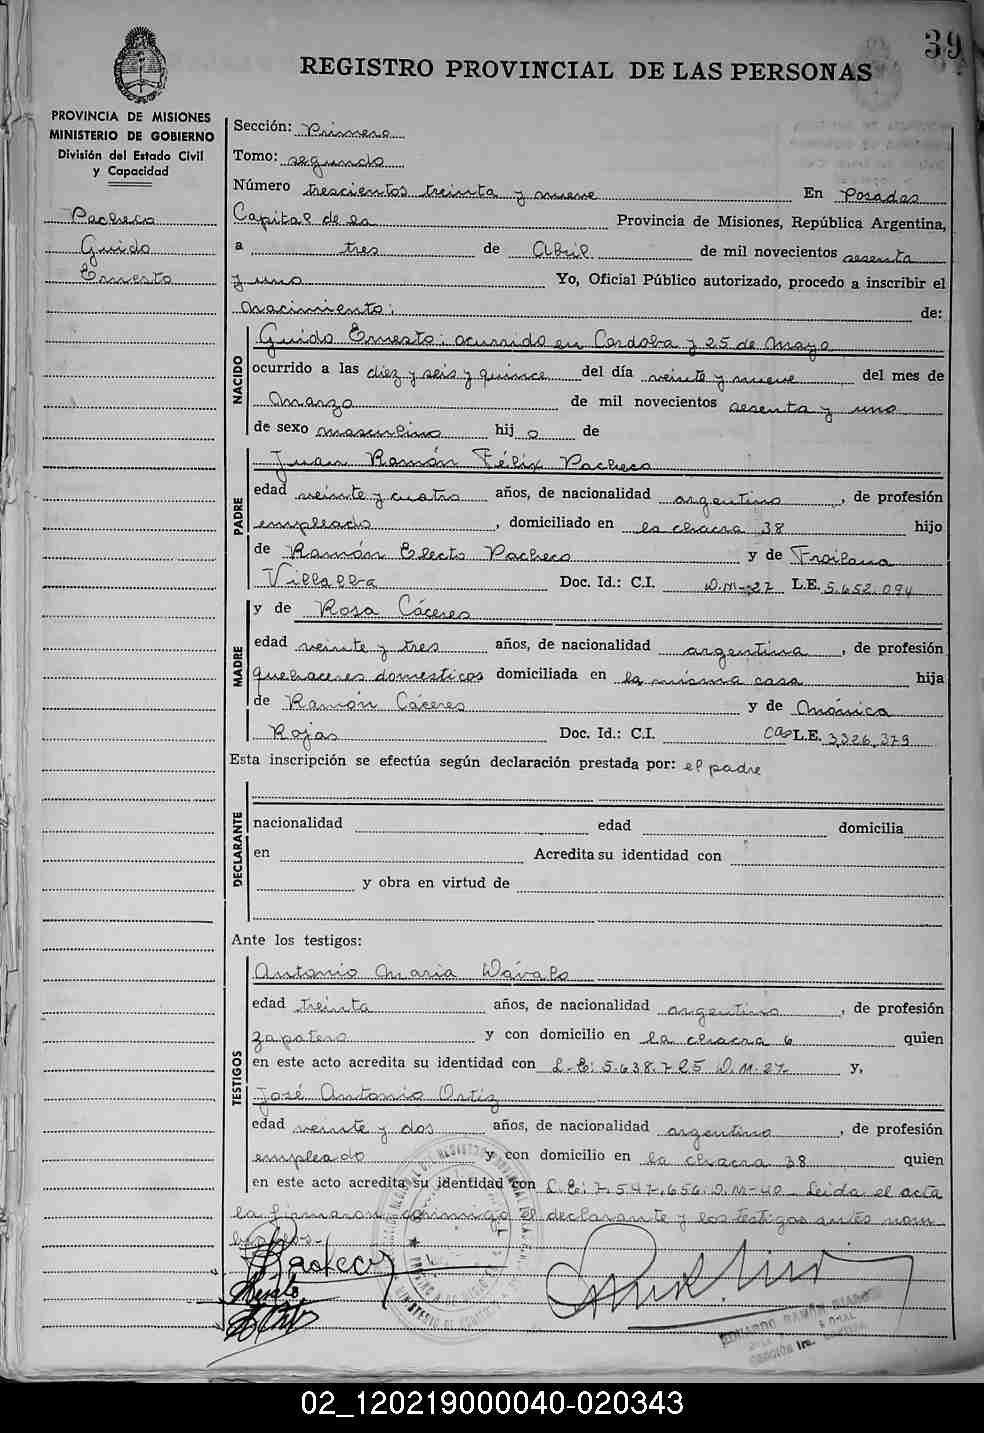 39
REGISTRO PROVINCIAL DE LAS PERSONAS
PROVINCIA DE MISIONES
MINISTERIO DE GOBIERNO
División del Estado Civil
y Capacidad
Pacheco
Guido
Ernesto
Sección: Primera
Tomo: segundo
Número trescientos treinta y nueve En Posadas
Capital de la Provincia de Misiones, República Argentina,
a tres de Abril de mil novecientos sesenta
y uno Yo, Oficial Público autorizado, procedo a inscribir el
Nacimiento: de:
NACIDO
Guido Ernesto: ocurrido en Cordoba y 25 de Mayo
ocurrido a las diez y seis y quince del día veinte y nueve del mes de
Marzo de mil novecientos sesenta y uno
de sexo masculino hij o de
PADRE
Juan Ramón Félix Pacheco
edad veinte y cuatro años, de nacionalidad argentino, de profesión
empleado, domiciliado en la chacra 38 hijo
de Ramón Electo Pacheco y de Froilana
Villalba Doc. Id.: C.I. D.M-27 L.E. 5.652.094
MADRE
y de Rosa Cáceres
edad veinte y tres años, de nacionalidad argentina, de profesión
quehaceres domesticos domiciliada en la misma casa hija
de Ramón Cáceres y de Mónica
Rojas Doc. Id.: C.I. L.E. 3,326,379
Esta inscripción se efectúa según declaración prestada por: el padre
DECLARANTE
nacionalidad edad domicilia
en Acredita su identidad con
y obra en virtud de
Ante los testigos:
TESTIGOS
Antonio Maria Dávalo
edad treinta años, de nacionalidad argentino, de profesión
zapatero y con domicilio en la chacra 6 quien
en este acto acredita su identidad con L.E: 5.638.725 D.M.27 y,
José Antonio Ortiz
edad veinte y dos años, de nacionalidad argentino, de profesión
empleado y con domicilio en la chacra 38 quien
en este acto acredita su identidad con L.E: 7.547.656 D.M-40_ Leida el acta
la firmaron conmigo el declarante y los testigos antes nom-
brados.-
EDUARDO RAMÓN
SECCIÓN 1ra.
02_120219000040-020343